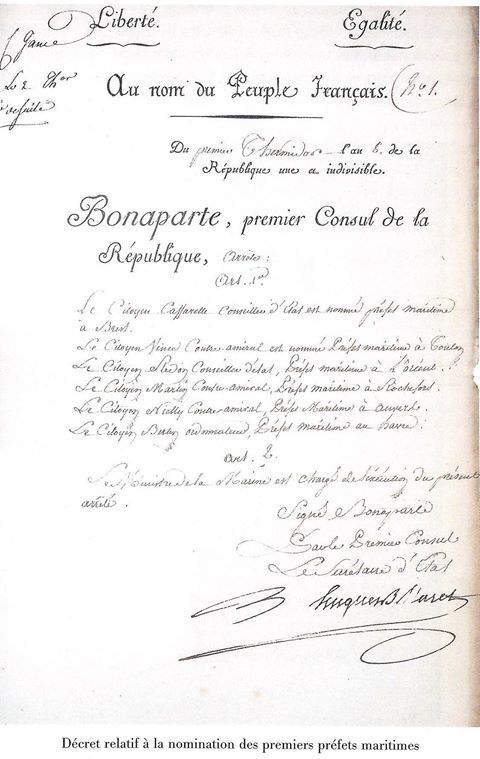 Liberté. Egalité.
Le 2 Ther
de suite
Au nom du Peuple Français. No. 1.
Du premier Thermidor l'an 8. de la
République une et indivisible.
Bonaparte, premier Consul de la
République, arrête:
Art. 1er.
Le Citoyen Caffarelli Conseiller d'Etat est nommé préfet maritime
à Brest.
Le Citoyen Vence Contre-amiral est nommé Préfet maritime à Toulon
Le Citoyen Redon Conseiller d'état, Préfet maritime à L'orient.
Le Citoyen Martin Contre-amiral, Préfet maritime à Rochefort.
Le Citoyen Nielly Contre-amiral, Préfet Maritime à anvers.
Le Citoyen Bertin ordonnateur, Préfet maritime au havre.
Art. 2.
Le Ministre de la Marine est chargé de l'exécution du présent
arrêté.
Signé Bonaparte
Par le Premier Consul
Le Secrétaire d'Etat
hugues B. Maret
Décret relatif à la nomination des premiers préfets maritimes